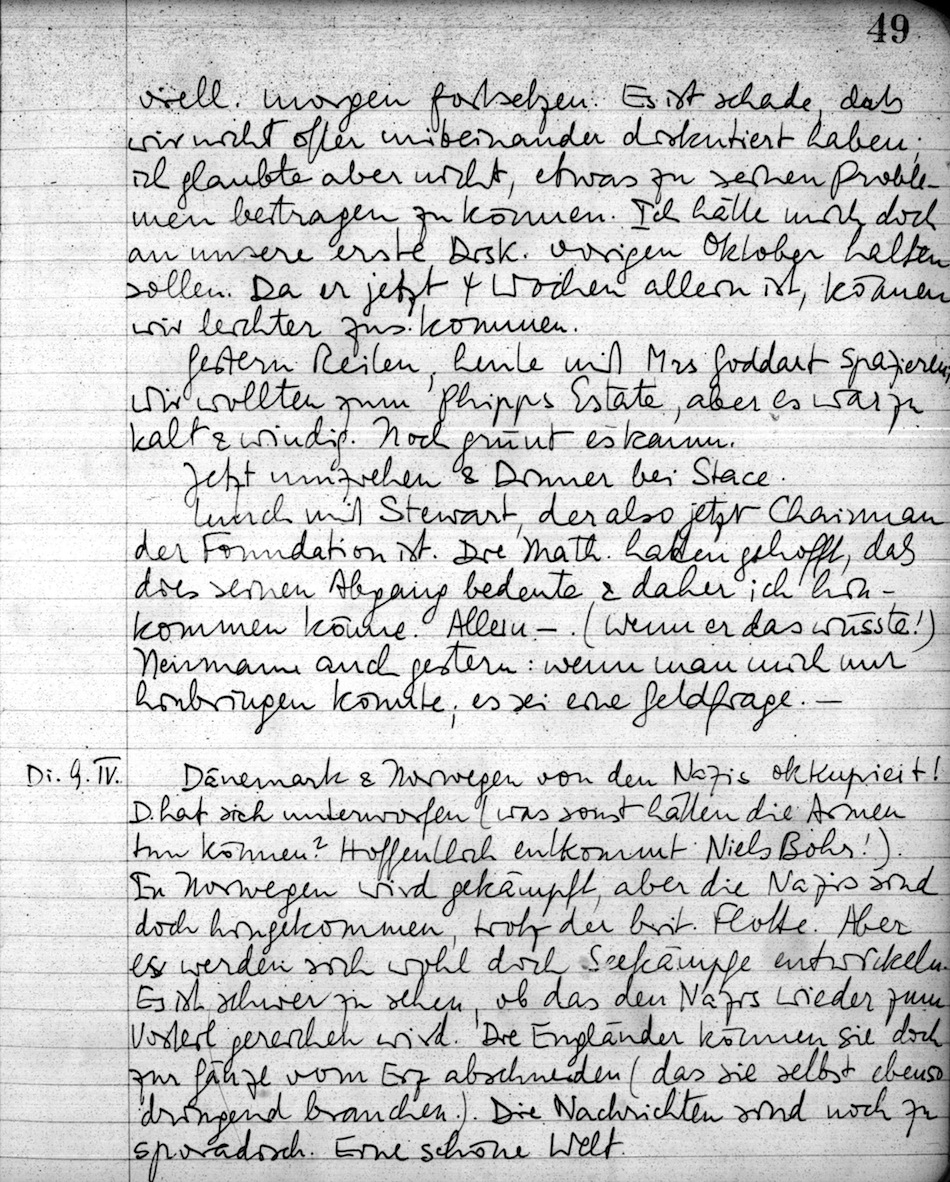 49
viell. morgen fortsetzen. Es ist schade, daß
wir nicht öfter miteinander diskutiert haben;
ich glaubte aber nicht, etwas zu seinen Proble-
men beitragen zu können. Ich hätte mich doch
an unsere erste Disk. vorigen Oktober halten
sollen. Da er jetzt 4 Wochen allein ist, können
wir leichter zus.kommen.
Gestern Reiten, heute mit Mrs Goddart spazieren,
wir wollten zum Phipps Estate, aber es war zu
kalt & windig. Noch grünt es kaum.
Jetzt umziehen & Dinner bei Stace.
Lunch mit Stewart, der also jetzt Chairman
der Foundation ist. Die Math. haben gehofft, daß
dies seinen Abgang bedeute & daher ich hin-
kommen könne. Allein –. (Wenn er das wüsste!)
Neumann auch gestern: wenn man mich nur
hinbringen könnte, es sei eine Geldfrage. –
Di. 9. IV. Dänemark & Norwegen von den Nazis okkupiert!
D. hat sich unterworfen (was sonst hätten die Armen
tun können? Hoffentlich entkommt Niels Bohr!).
In Norwegen wird gekämpft, aber die Nazis sind
doch hingekommen, trotz der brit. Flotte. Aber
es werden sich wohl doch Seekämpfe entwickeln.
Es ist schwer zu sehen, ob das den Nazis wieder zum
Vorteil gereichen wird. Die Engländer können sie doch
zur Gänze vom Erz abschneiden (das sie selbst ebenso
dringend brauchen.). Die Nachrichten sind noch zu
sporadisch. Eine schöne Welt.